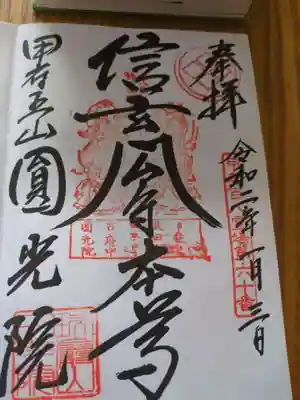 奉拝
令和二年一月三日
信玄公守本尊
甲府五山圓光院